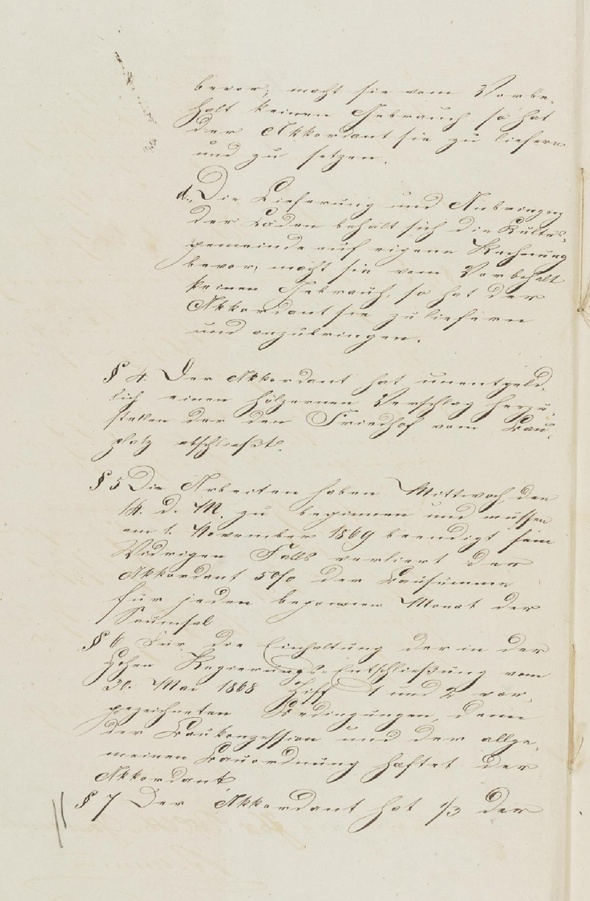 bevor; macht sie vom Vorbe-
halt keinen Gebrauch so hat
der Akkordant sie zu liefern
und zu setzen.
d. Die Lieferung und Anbringung
der Läden behält sich die Kultus-
gemeinde auf eigene Rechnung
bevor, macht sie vom Vorbehalt
keinen Gebrauch, so hat der
Akkordant sie zu liefern
und anzubringen.
§ 4. Der Akkordant hat unentgeld-
lich einen hölzernen Verschlag herzu
stellen der den Friedhof vom Bau-
platz abschließt.
§ 5 Die Arbeiten haben Mittwoch den
14. d. M. zu beginnen und müssen
am 1. November 1869 beendigt sein
Widrigen Falls verliert der
Akkordant 5% der Bausumme
für jeden begonnenen Monat der
Saumsal
§ 6 Für die Einhaltung der in der
hohen Regierungs-Entschließung vom
30. Mai 1868 Ziff 1 und 2 vor-
gezeichneten Bedingungen, denn
der Baukonzession und der allge-
meinen Bauordnung haftet der
Akkordant
§ 7 Der Akkordant hat 1/3 der